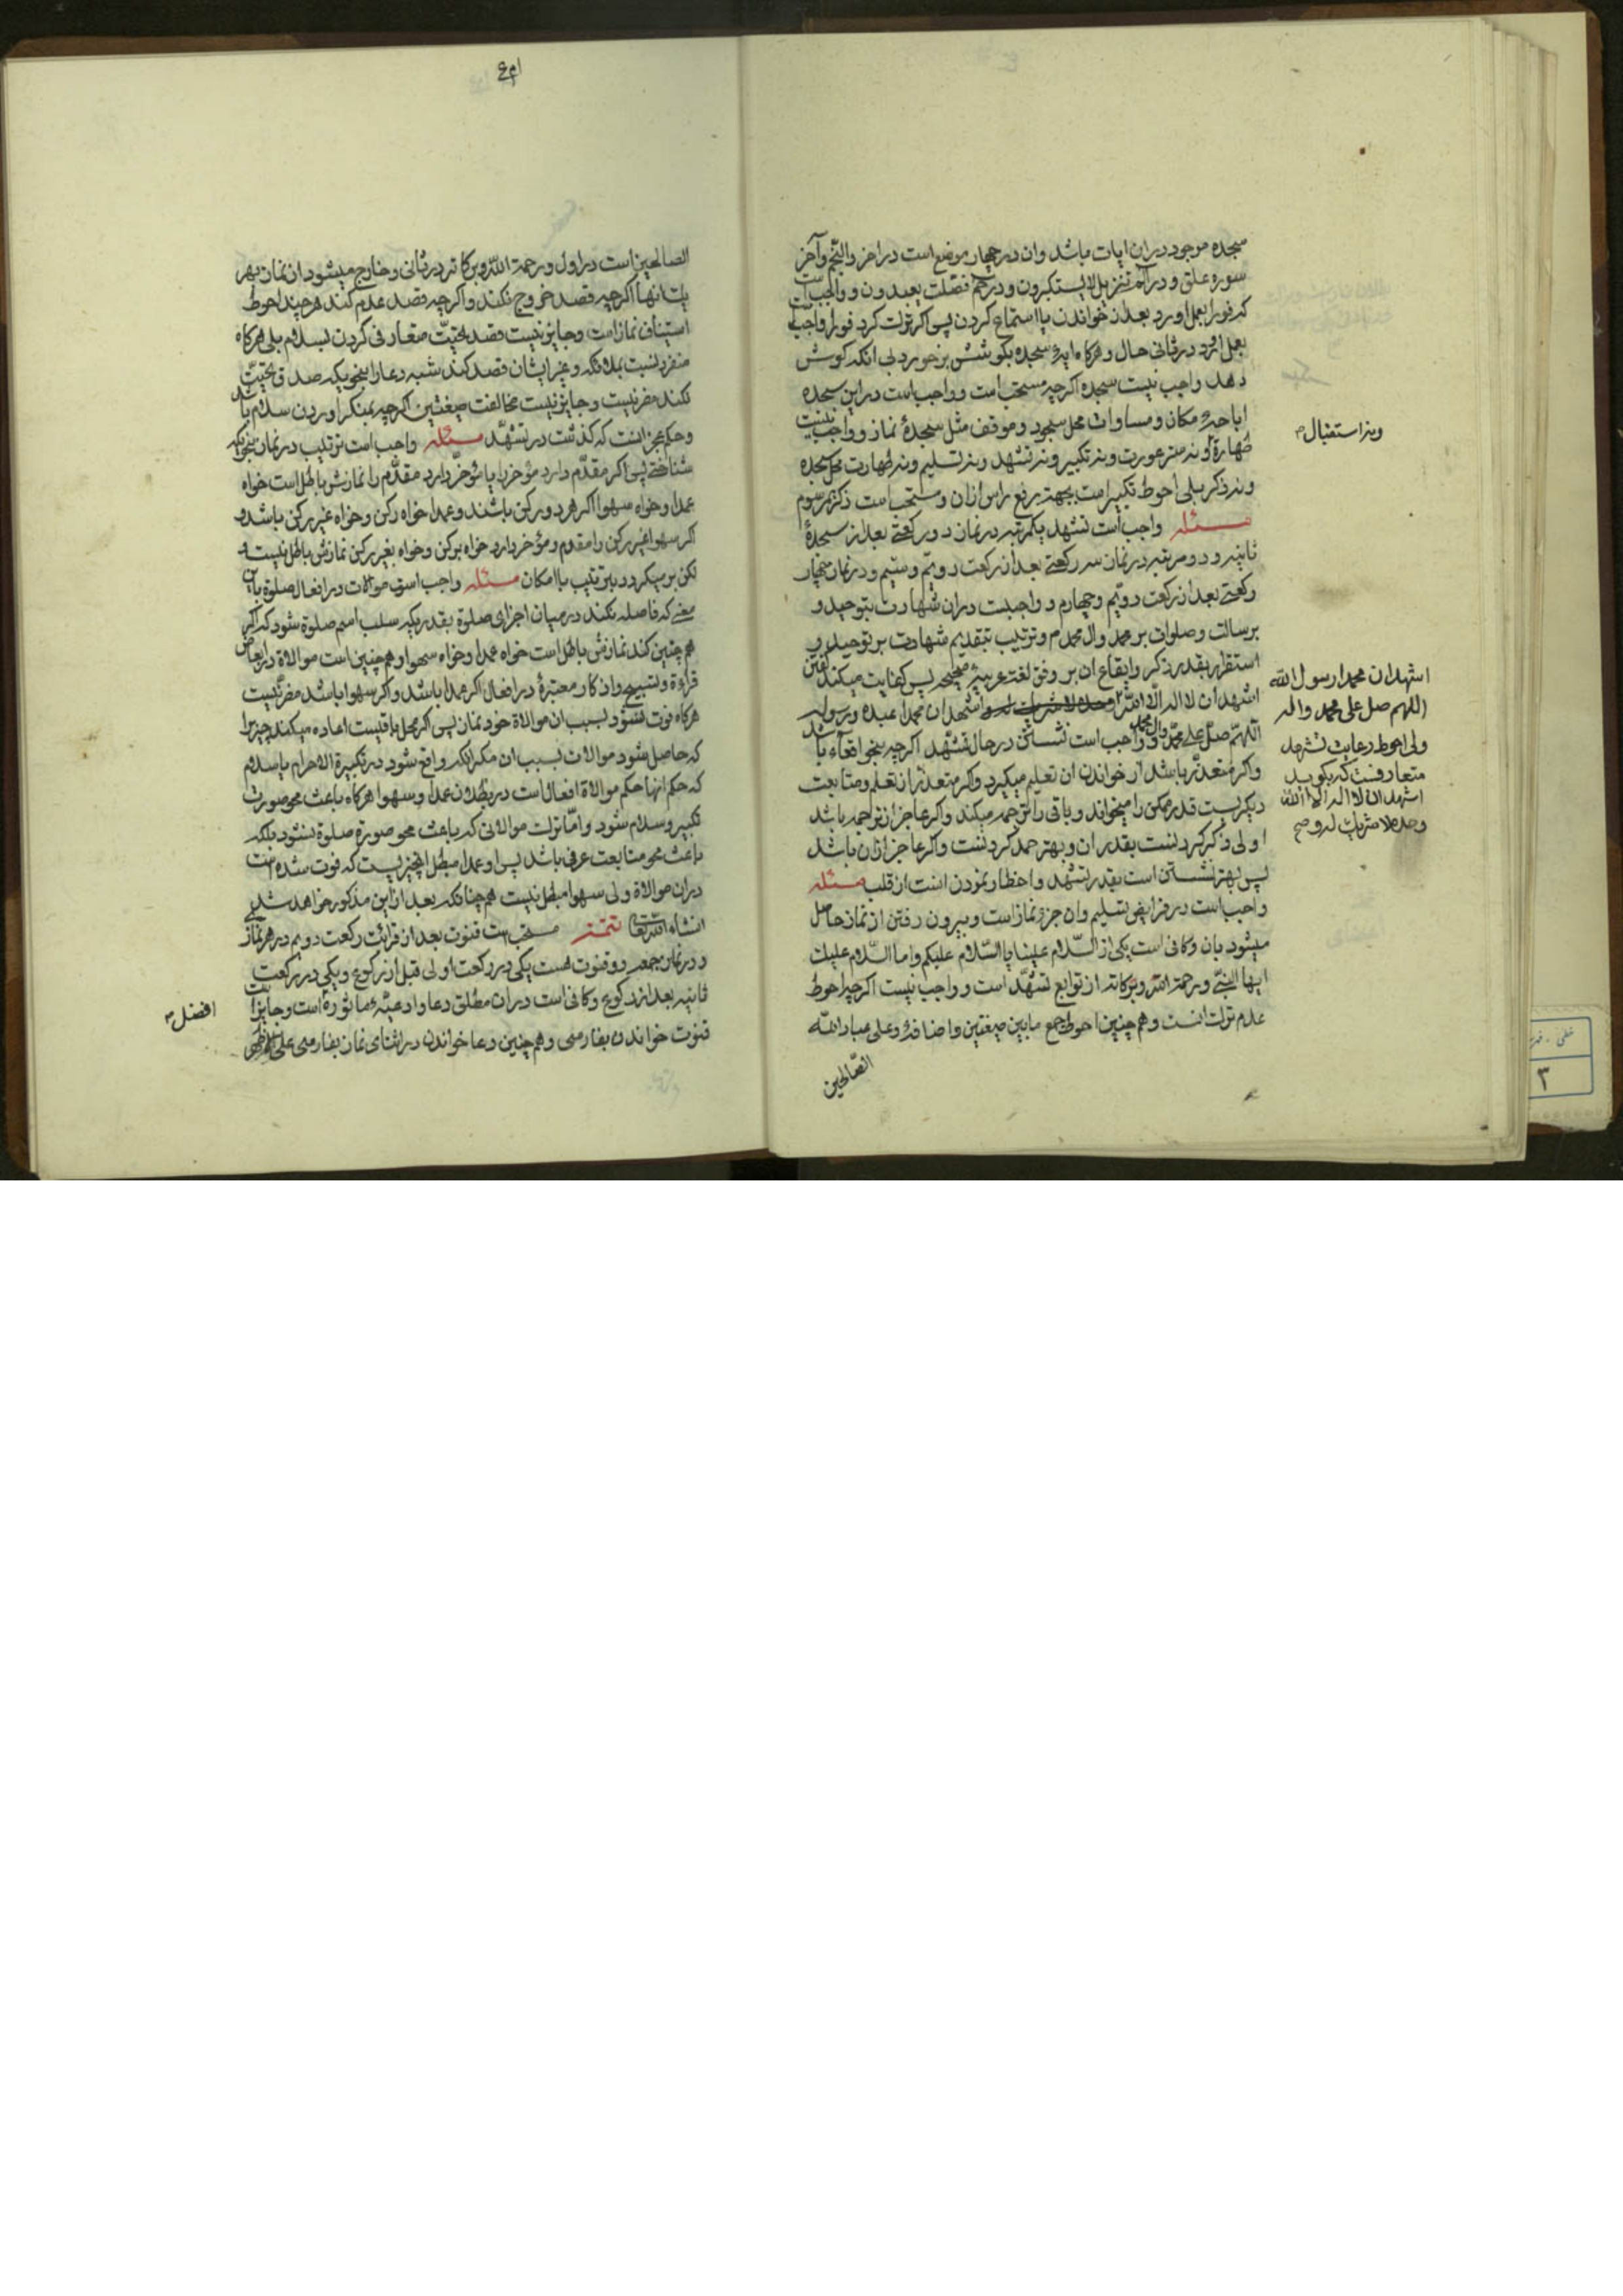 سجده موجود در ان ایات باشد وان در چهار موضع است در اخر والنجم وآخر
سوره علق و در الم تنزیل لا یستکبرون و در حم فصلت یعبدون و واجب است
که فورا بعمل اورد بعد از خواندن یا استماع کردن پس اکر ترك کرد فورا واجب است
بعمل اورد در ثانی حال و هرکاه ایهٔ سجده بکوشش برخورد بی انکه کوش
دهد واجب نیست سجده اکرچه مستحب است و واجب است در این سجده
اباحهٔ مکان و مساوات محل سجود و موقف مثل سجدهٔ نماز و واجب نیست
طهارة و نه ستر عورت و نه تکبیر و نه تشهد و نه تسلیم و نه طهارت محل سجده
ونه استقبال
و نه ذکر بلی احوط تکبیر است بجهة رفع راس ازان و مستحب است ذکر مرسوم
مسئله واجب است تشهد یکمرتبه در نماز دو رکعتی بعد از سجدهٔ
ثانیه و دو مرتبه در نماز سه رکعتی بعد از رکعت دویم وسیم و در نماز چهار
رکعتی بعد از رکعت دویم و چهارم و واجبست در ان شهادت بتوحید و
برسالت و صلوات بر محمد وال محمد و ترتیب بتقدیم شهادت بر توحید و
استقرار بقدر ذکر وایقاع ان بر وفق لغت عربیهٔ صحیحه پس کفایت میکند کفتن
اشهد ان لا اله الا الله وحده لا شریك له و اشهد ان محمدا عبده ورسوله
اللهم صل علی محمد وال محمد و واجب است نشستن در حال تشهد اکرچه بنحو اقعاء باشد
اشهد ان محمدا رسول الله
اللهم صل علی محمد واله
ولی احوط رعایت تشهد
متعارفست که بکوید
اشهد ان لا اله الا الله
وحده لا شریك له وصح
واکر متعذر باشد از خواندن ان تعلیم میکیرد واکر متعذر از تعلم ومتابعت
دیکریست قدر ممکن را میخواند و باقی را ترجمه میکند واکر عاجز از ترجمه باشد
اولی ذکر کردنست بقدر ان و بهتر حمد کردنست واکر عاجز ازان باشد
پس بهتر نشستن است بقدر تشهد واخطار نمودن انست از قلب مسئله
واجب است در فرایض تسلیم وان جزء نماز است و بیرون رفتن از نماز حاصل
میشود بان وکافی است یکی از السلام علینا یا السلام علیکم واما السلام علیك
ایها النبی ورحمة الله وبرکاته از توابع تشهد است و واجب نیست اکرچه احوط
عدم ترك انست و هم چنین احوط جمع مابین صیغتین واضافهٔ وعلی عباد الله
الصالحین
۴۱
الصالحین است در اول و رحمة الله وبرکاته در ثانی و خارج میشود از نماز بهر
یك انها اکرچه قصد خروج نکند واکرچه قصد عدم کند هر چند احوط
استیناف نماز است و جایز نیست قصد تحیت متعارفی کردن بسلام بلی هرکاه
منفرد نسبت بملائکه و غیر ایشان قصد کند شبه دعا را بنحویکه صدق تحیت
نکند مضر نیست و جایز نیست مخالفت صیغتین اکرچه بمنکر اوردن سلام باشد
وحکم عجز انست که کذشت در تشهد مسئله واجب است ترتیب در نماز بنحویکه
شناختی پس اکر مقدم دارد مؤخر را یا مؤخر دارد مقدم را نمازش باطل است خواه
عمدا و خواه سهوا اکر هر دو رکن باشند و عمدا خواه رکن و خواه غیر رکن باشد و
اکر سهوا غیر رکن را مقدم و مؤخر دارد خواه برکن و خواه بغیر رکن نمازش باطل نیست و
لکن بر میکردد بترتیب با امکان مسئله واجب است موالات در افعال صلوة بآن
معنی که فاصله نکند در میان اجزای صلوة بقدریکه سلب اسم صلوة شود که اکر
هم چنین کند نمازش باطل است خواه عمدا و خواه سهوا و هم چنین است موالاة در ابعاض
قراءة و تسبیح و اذکار معتبرهٔ در افعال اکر عمدا باشد و اکر سهوا باشد مضر نیست
هرکاه فوت نشود بسبب ان موالاة خود نماز پس اکر محل باقیست اعاده میکند چیزیرا
که حاصل شود موالات بسبب ان مکر انکه واقع شود در تکبیرة الاحرام یا سلام
که حکم انها حکم موالاة افعال است در بطلان عمدا و سهوا هرکاه باعث محو صورت
تکبیر و سلام شود و اما ترك موالاتی که باعث محو صورة صلوة نشود بلکه
باعث محو متابعت عرفی باشد پس او عمدا مبطل انچیزیست که فوت شده است
در ان موالاة ولی سهوا مبطل نیست هم چنانکه بعد از این مذکور خواهد شد
انشاء الله تعالی تتمه مستحب است قنوت بعد از قرائت رکعت دویم در هر نماز
و در نماز جمعه دو قنوت هست یکی در رکعت اولی قبل از رکوع و یکی در رکعت
ثانیه بعد از رکوع و کافی است در ان مطلق دعا و ادعیهٔ ماثوره است و جایز است
افضل
قنوت خواندن بفارسی و هم چنین دعا خواندن در اثنای نماز بفارسی علی الاظهر